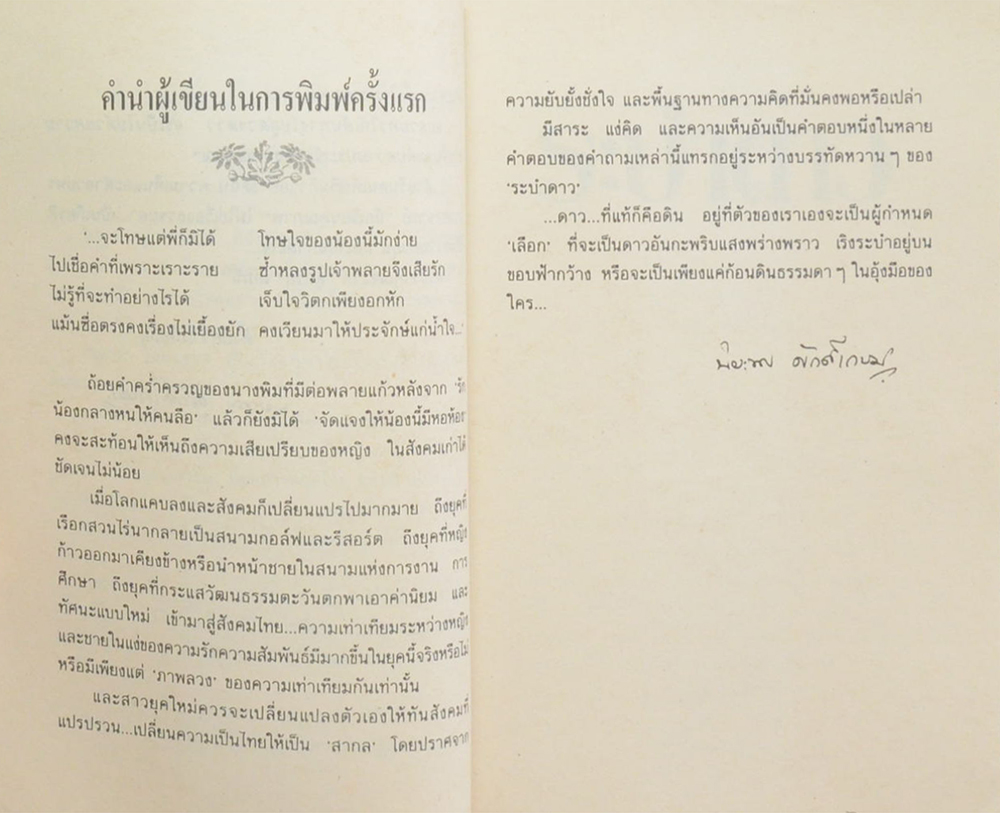 คำนำผู้เขียนในการพิมพ์ครั้งแรก
'...จะโทษแต่พี่ก็มิได้ โทษใจของน้องนี้มักง่าย
ไปเชื่อคำที่เพราะเราะราย ซ้ำหลงรูปเจ้าพลายจึงเสียรัก
ไม่รู้ที่จะทำอย่างไรได้ เจ็บใจวิตกเพียงอกหัก
แม้นซื่อตรงคงเรื่องไม่เยื้องยัก คงเวียนมาให้ประจักษ์แก่น้ำใจ...'
ถ้อยคำคร่ำครวญของนางพิมที่มีต่อพลายแก้วหลังจาก 'รัก
น้องกลางหนให้คนลือ' แล้วก็ยังมิได้ 'จัดแจงให้น้องนี้มีหอห้อง'
คงจะสะท้อนให้เห็นถึงความเสียเปรียบของหญิง ในสังคมเก่าได้
ชัดเจนไม่น้อย
เมื่อโลกแคบลงและสังคมก็เปลี่ยนแปรไปมากมาย ถึงยุคที่
เรือกสวนไร่นากลายเป็นสนามกอล์ฟและรีสอร์ต ถึงยุคที่หญิง
ก้าวออกมาเคียงข้างหรือนำหน้าชายในสนามแห่งการงาน การ
ศึกษา ถึงยุคที่กระแสวัฒนธรรมตะวันตกพาเอาค่านิยม และ
ทัศนะแบบใหม่ เข้ามาสู่สังคมไทย...ความเท่าเทียมระหว่างหญิง
และชายในแง่ของความรักความสัมพันธ์มีมากขึ้นในยุคนี้จริงหรือไม่
หรือมีเพียงแต่ 'ภาพลวง' ของความเท่าเทียมกันเท่านั้น
และสาวยุคใหม่ควรจะเปลี่ยนแปลงตัวเองให้ทันสังคมที่
แปรปรวน...เปลี่ยนความเป็นไทยให้เป็น 'สากล' โดยปราศจาก
ความยับยั้งชั่งใจ และพื้นฐานทางความคิดที่มั่นคงพอหรือเปล่า
มีสาระ แง่คิด และความเห็นอันเป็นคำตอบหนึ่งในหลาย
คำตอบของคำถามเหล่านี้แทรกอยู่ระหว่างบรรทัดหวาน ๆ ของ
'ระบำดาว'
...ดาว...ที่แท้ก็คือดิน อยู่ที่ตัวของเราเองจะเป็นผู้กำหนด
'เลือก' ที่จะเป็นดาวอันกะพริบแสงพร่างพราว เริงระบำอยู่บน
ขอบฟ้ากว้าง หรือจะเป็นเพียงแค่ก้อนดินธรรมดา ๆ ในอุ้งมือของ
ใคร...